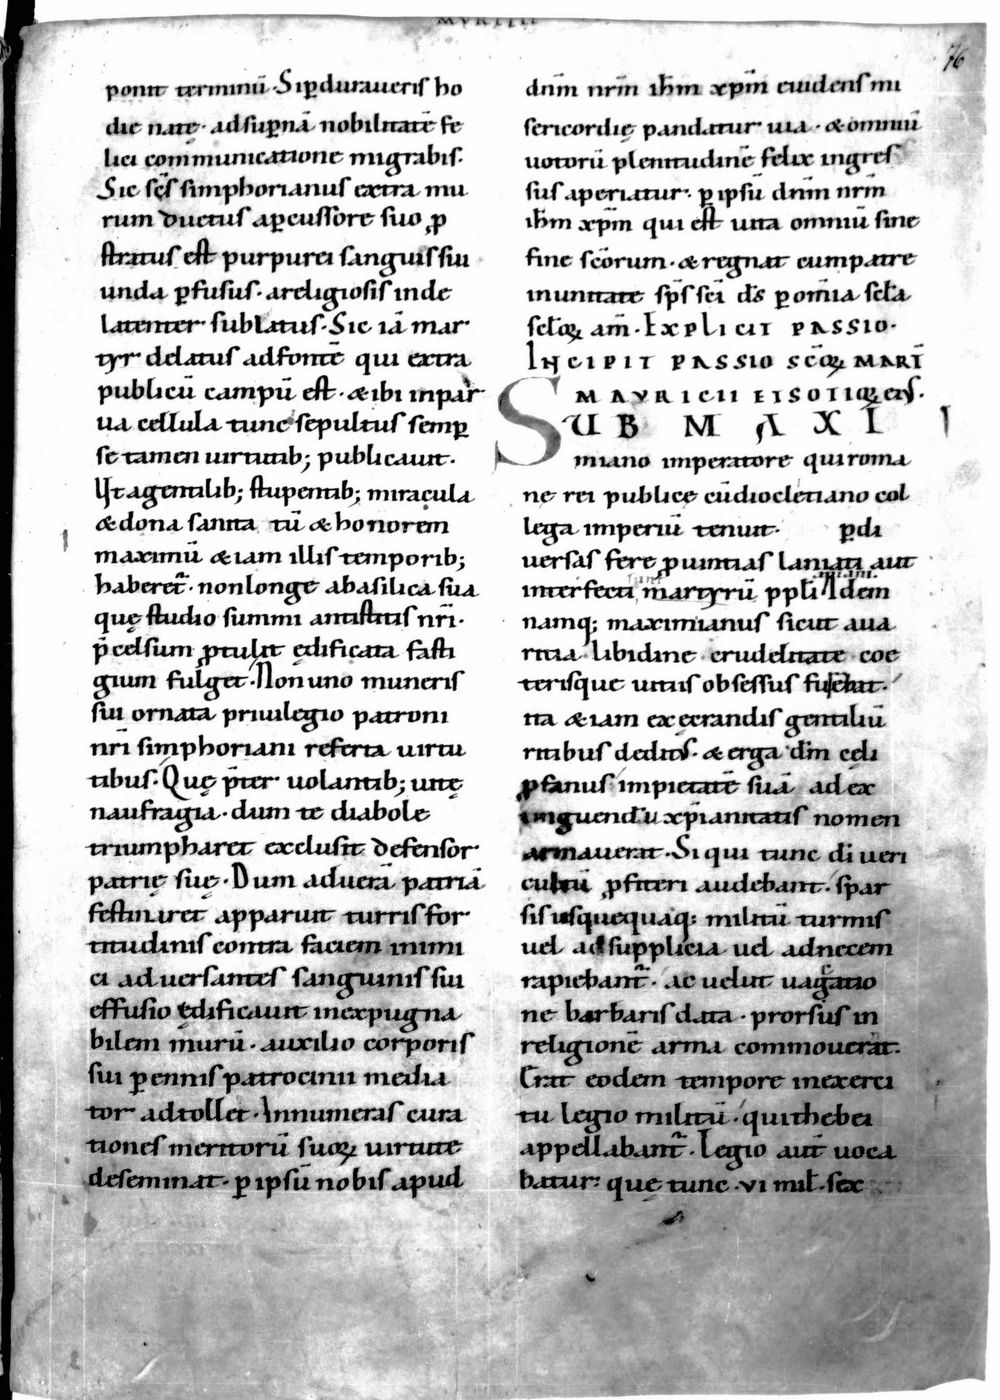 76
ponit terminū. Sip̄duraueris ho
die natę. adsup̄nā nobilitatē fe
lici communicatione migrabis.
Sic sc̄s simphorianus extra mu
rum ductus ap̄cussore suo ꝓ
stratus est purpurei sanguis sui
unda ꝑfusus. areligiosis inde
latenter sublatus. Sic iā mar
tyr delatus adfontē qui extra
publicū campū est. &ibi inpar
ua cellula tunc sepultus semꝑ
se tamen uirtutib; publicauit.
Ut agentilib; stupentib; miracula
&dona sanita tū &honorem
maximū &iam illis temporib;
haberet̄. nonlonge abasilica sua
quę studio summi antistitis nr̄i.
p̄celsum ꝓtulit ędificata fasti
gium fulget. Non uno muneris
sui ornata priuilegio patroni
nr̄i simphoriani referta uirtu
tibus. Quę p̄ter uolantib; uitę
naufragia. dum te diabole
triumpharet exclusit defensor
patrię suę. Dum aduerā patriā
festinaret apparuit turris for
titudinis contra faciem inimi
ci aduersantes sanguinis sui
effusio ędificauit inexpugna
bilem murū. auxilio corporis
sui ꝑennis patrocinii media
tor adtollet. Innumeras cura
tiones meritorū suoꝝ uirtute
deseminat. ꝑ ipsū nobis apud
dn̄m nr̄m ih̄m xp̄m euidens mi
sericordię pandatur uia. &omniū
uotorū plenitudinē felix ingres
sus aperiatur. ꝑ ipsū dn̄m nr̄m
ih̄m xp̄m qui est uita omniū sine
fine sc̄orum. &regnat cumpatre
inunitate sp̄s sc̄i d̄s ꝑ om̄ia sc̄la
sc̄loꝝ am̄. Explicit passio.
Incipit passio sc̄oꝝ marī
mauricii et sotioꝝ eius.
SUB MAXI
miano imperatore qui roma
ne rei publicę cūdiocletiano col
lega imperiū tenuit. ꝑdi
uersas fere ꝓuintias laniati aut
interfecti martyrū pp̄li Idem
namq; maximianus sicut aua
ritia libidine crudelitate cę
terisque uitiis obsessus
ita &iam execrandis gentiliū
ritibus deditus. &erga d̄m cęli
ꝓfanus impietatē suā ad ex
tinguendū xp̄ianitatis nomen
armauerat. Si qui tunc di ueri
cultū ꝓfiteri audebant. spar
sis usquequaq; militū turmis
uel adsupplicia uel adnecem
rapiebant̄. ac uelut uagatio
ne barbaris data. prorsus in
religionē arma commouerat.
Erat eodem tempore inexerci
tu legio militū. quithebei
appellabant̄. Legio aut̄ uoca
batur. quę tunc .vi mil̄. sex